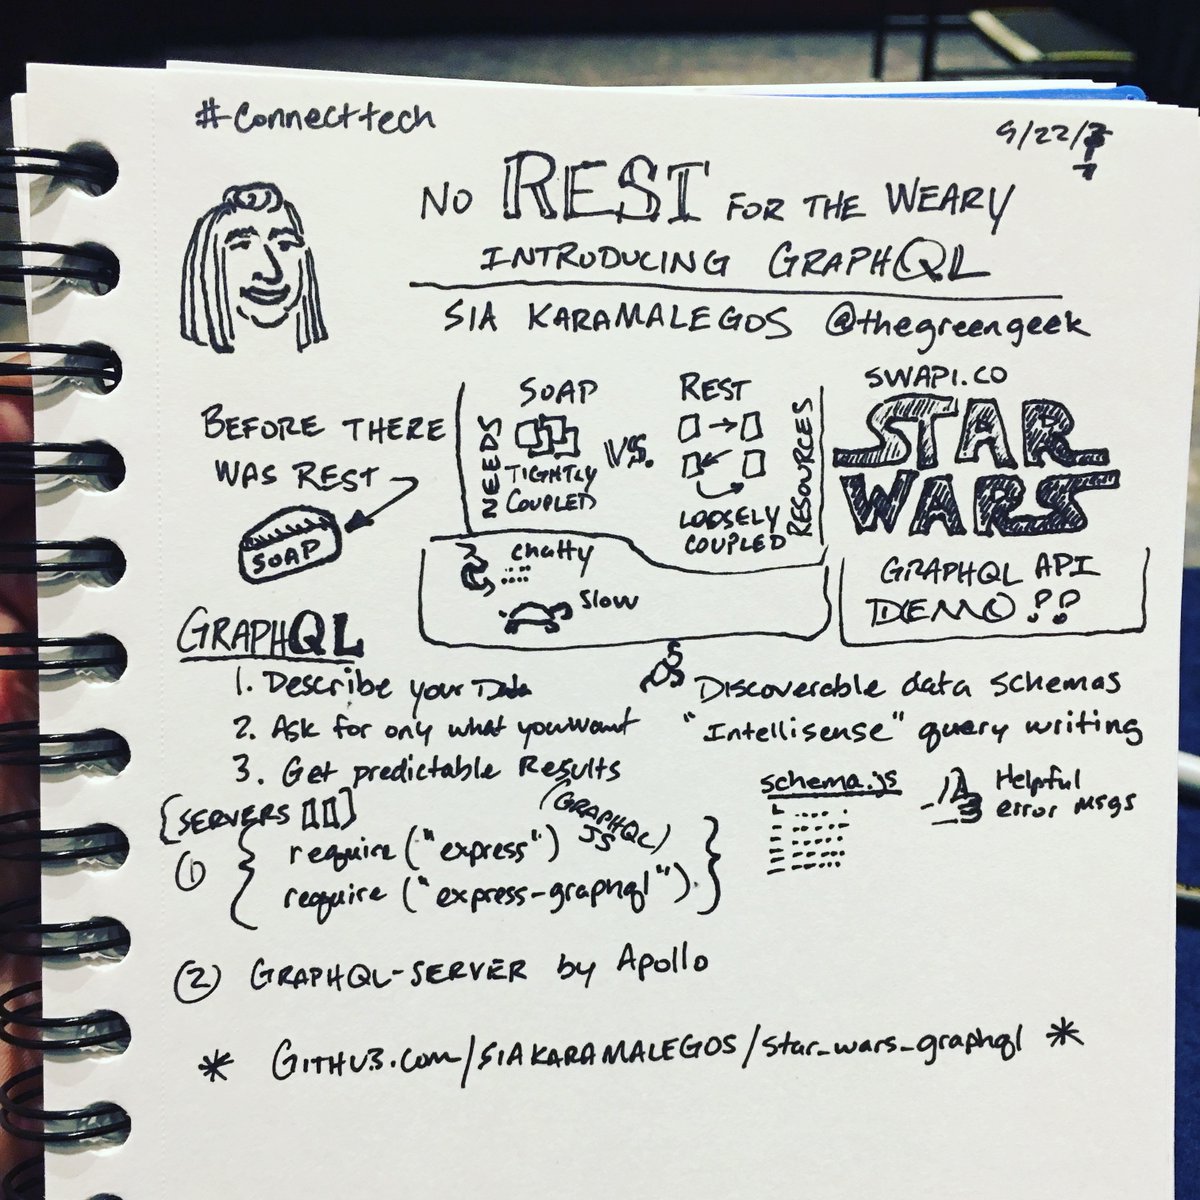 #connecttech
9/22/17
NO REST FOR THE WEARY
INTRODUCING GRAPHQL
SIA KARAMALEGOS @thegreengeek
BEFORE THERE
WAS REST
SOAP
NEEDS
SOAP
TIGHTLY
COUPLED
VS.
REST
LOOSELY
COUPLED
RESOURCES
SWAPI.CO
STAR
WARS
chatty
slow
GRAPHQL API
DEMO !?
GRAPHQL
1. Describe your Data
2. Ask for only what you want
3. Get predictable Results
Discoverable data schemas
"Intellisense" query writing
schema.js
Helpful
error msgs
[SERVERS]
(GRAPHQL
JS)
1 { require ("express")
require ("express-graphql") }
2 GRAPHQL-SERVER by Apollo
* GITHUB.com/SIAKARAMALEGOS/star_wars_graphql *